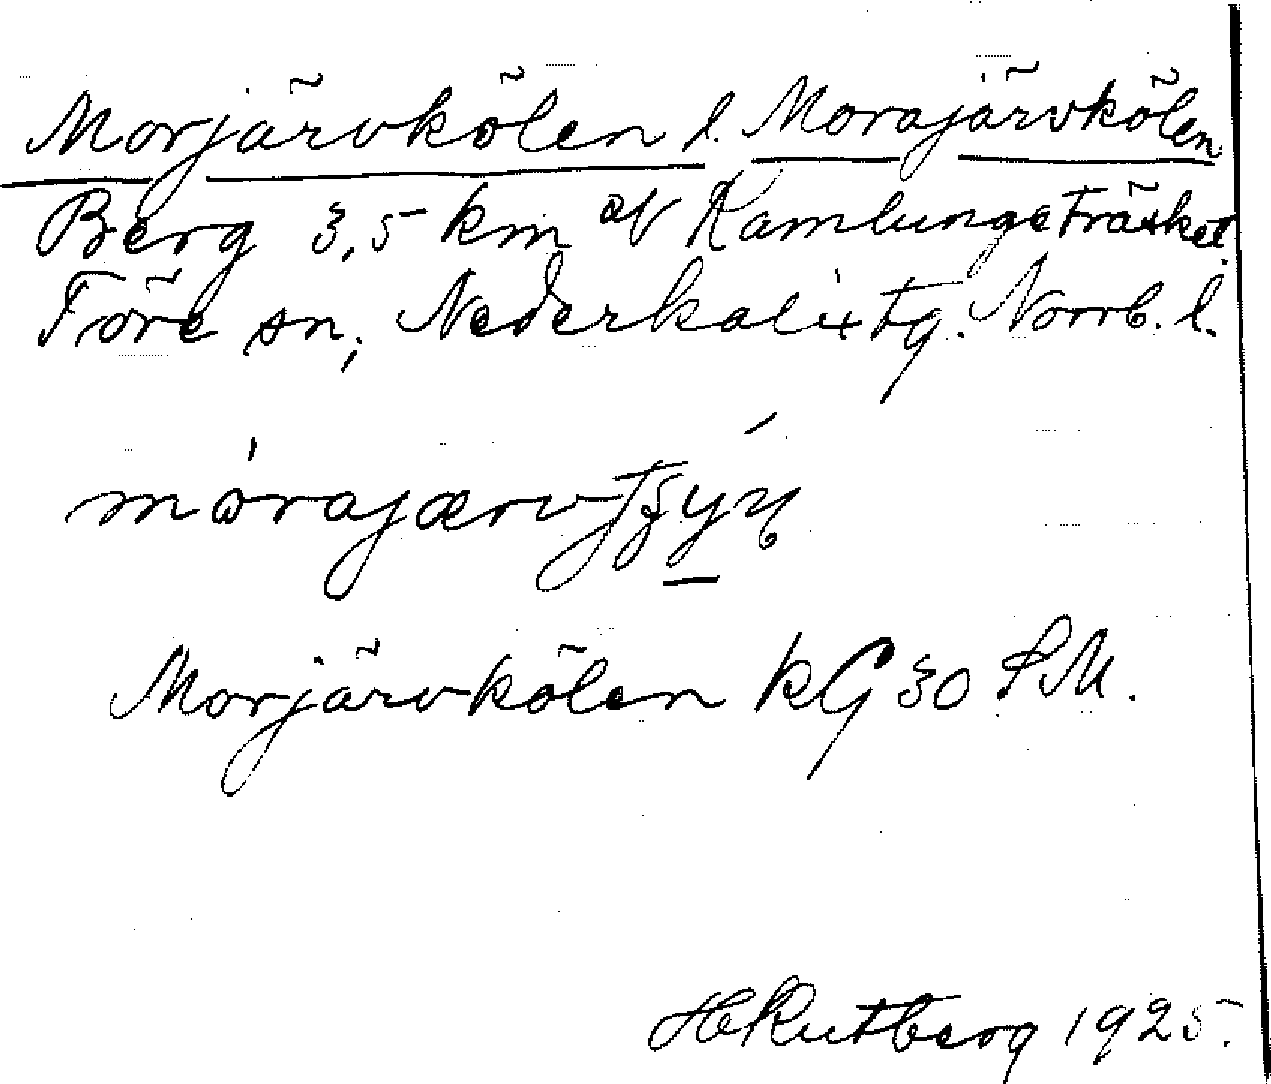 Morjärvkölen l. Morajärvkölen
Berg 3,5 km av Kamlungeträsket.
Töre sn, Nederkalix tg. Norrb. l.
Morjärvkölen kG 30 SM.
H Rutberg 1925.